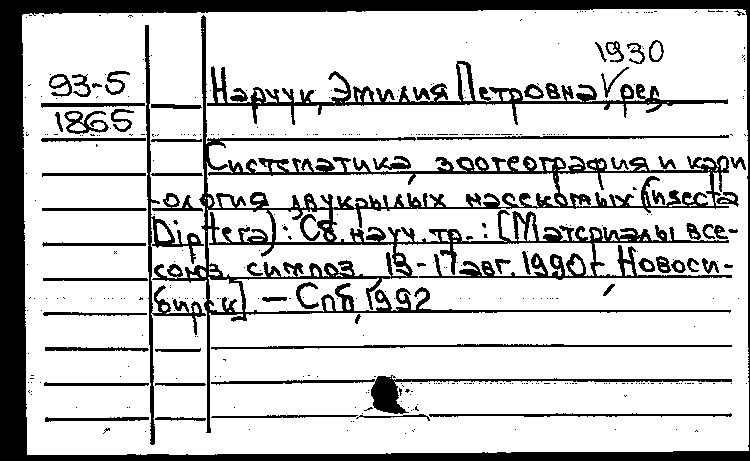 1930
93-5
1865
Нарчук, Эмилия Петровна, ред.
Систематика, зоогеография и кари
-ология двукрылых насекомых (Insecta
Diptera): Сб. науч. тр.: [Материалы все-
союз. симпоз. 13-17 авг. 1990 г. Новоси-
бирск]. — Спб, 1992